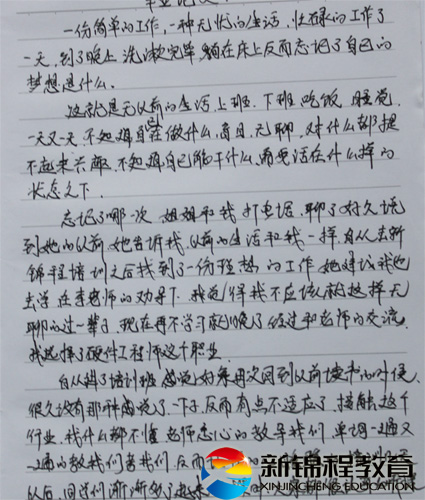 一份简单的工作,一种无忧的生活,忙碌的工作了
一天,到了晚上洗漱完毕,躺在床上反而忘记了自己的
梦想是什么。
这就是我以前的生活上班、下班吃饭、睡觉,
一天又一天,不知道自己在做什么,盲目,无聊,对什么都提
不起来兴趣,不知道自己能干什么,需要活在什么样的
状态之下。
忘记了哪一次姐姐和我打电话,聊了好久说
到她的以前,她告诉我,以前的生活和我一样,自从去新
锦程培训之后找到了一份理想的工作,她建议我也
去学,在李老师的劝导下,我觉得我不应该就这样无
聊的过一辈子,现在再不学习就晚了,经过和老师的交流,
我选择了硬件工程师这个职业。
自从进了培训班感觉好像再次回到以前读书的时候,
很久没有那种感觉了,一下子反而有点不适应了,接触这个
行业,我什么都不懂,老师悉心的教导我们,单词一遍又
一遍的教我们
以后,同学们渐渐
新锦程教育
XINJINCHENG EDUCATION